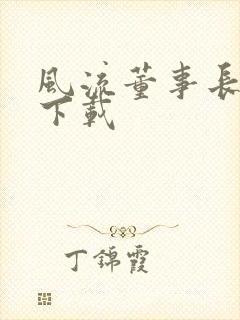 風流董事長
下載
丁錦霞